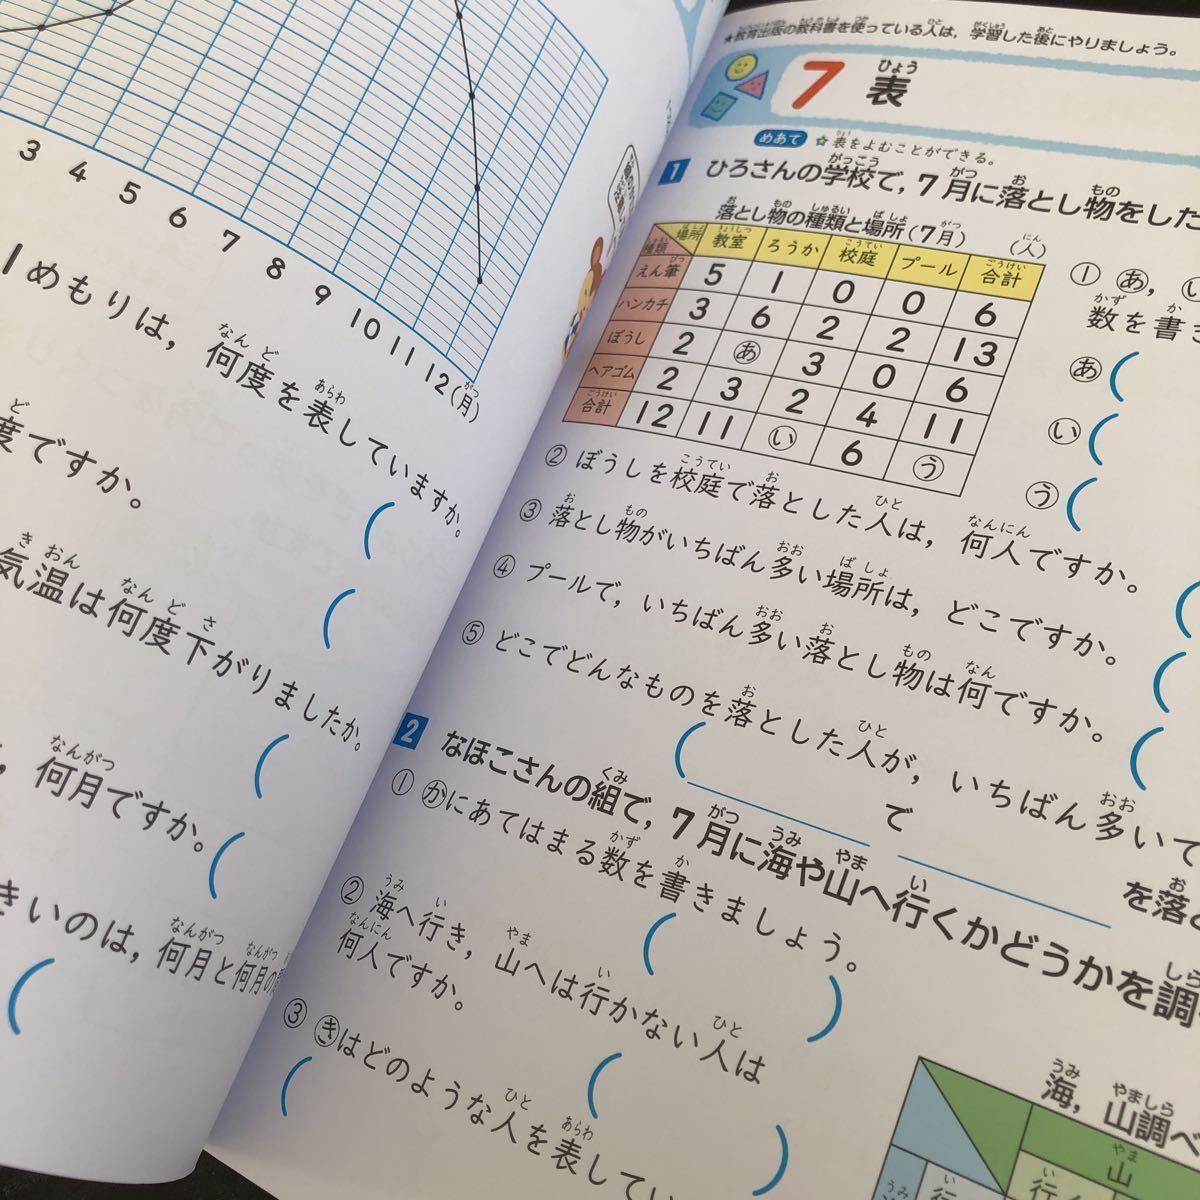 3 4 5 6 7 8 9 10 11 12(月)
1めもりは，何度を表していますか。
度ですか。
気温は何度下がりましたか。
，何月ですか。
きいのは，何月と何月の
★教育出版の教科書を使っている人は，学習した後にやりましょう。
7 表
めあて ☆表をよむことができる。
1 ひろさんの学校で，7月に落とし物をした
落とし物の種類と場所(7月) (人)
種類 場所 教室 ろうか 校庭 プール 合計
えん筆 5 1 0 0 6
ハンカチ 3 6 2 2 13
ぼうし 2 あ 3 0 6
ヘアゴム 2 3 2 4 11
合計 12 11 い 6 う
① あ，い
数を書き
あ(
い(
う(
② ぼうしを校庭で落とした人は，何人ですか。(
③ 落とし物がいちばん多い場所は，どこですか。(
④ プールで，いちばん多い落とし物は何ですか。(
⑤ どこでどんなものを落とした人が，いちばん多いで
( で を落と
2 なほこさんの組で，7月に海や山へ行くかどうかを調べ
① かにあてはまる数を書きましょう。
( )
② 海へ行き，山へは行かない人は
何人ですか。
( )
③ きはどのような人を表してい
(
海，山調べ
山
行
海 行